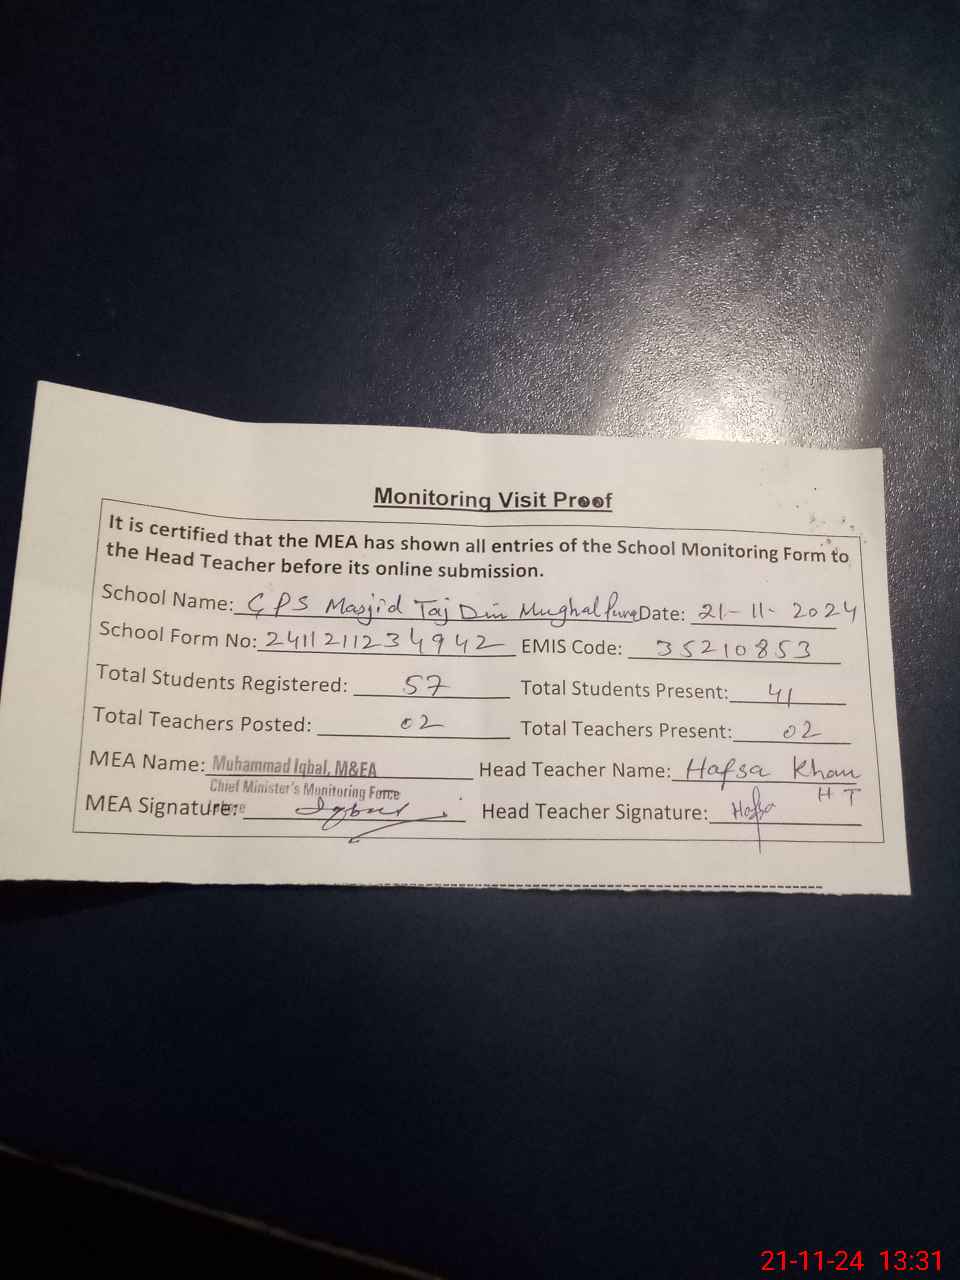 Monitoring Visit Proof
It is certified that the MEA has shown all entries of the School Monitoring Form to
the Head Teacher before its online submission.
School Name: GPS Masjid Taj Din Mughalpura Date: 21-11-2024
School Form No: 2411211234942 EMIS Code: 35210853
Total Students Registered: 57 Total Students Present: 41
Total Teachers Posted: 02 Total Teachers Present: 02
MEA Name: Muhammad Iqbal, M&EA Head Teacher Name: Hafsa Khan
Chief Minister's Monitoring Force H T
MEA Signature: Iqbal Head Teacher Signature: Hafsa
21-11-24 13:31